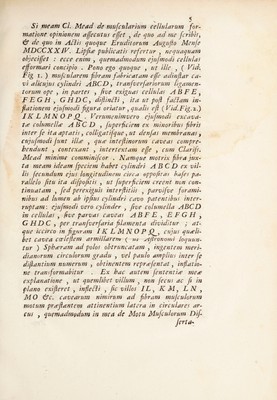 5
Si meam Cl. Mead de muscularium cellularum for-
matione opinionem assecutus esset, de quo ad me scribis,
& de quo in Actis quoque Eruditorum Augusto Mense
MDCCXXIV. Lipsiæ publicatis refertur, nequaquam
objecisset: ecce enim, quemadmodum ejusmodi cellulas
efformari concipio. Pono ego quoque, ut ille, (Vid.
Fig. 1.) muscularem fibram fabricatam esse adinstar ca-
vi alicujus cylindri ABCD, transversariorum ligamen-
torum ope, in partes, sive exiguas cellulas ABFE,
FEGH, GHDC, distincti, ita ut post factam in-
flationem ejusmodi figura oriatur, qualis est (Vid. Fig. 2.)
IKLMNOPQ. Verumenimvero ejusmodi excava-
tæ columellæ ABCD, superficiem ex minoribus fibris
inter se ita aptatis, colligatisque, ut densas membranas,
cujusmodi sunt illæ, quæ intestinorum caveas compre-
hendunt, contexant, intertextam esse, cum Clariss.
Mead minime comminiscor. Namque motrix fibra jux-
ta meam ideam speciem habet cylindri ABCD ex vil-
lis secundum ejus longitudinem circa oppositas bases pa-
rallelo situ ita dispositis, ut superficiem creent non con-
tinuatam, sed perexiguis interstitiis, parvisve forami-
nibus ad lumen ab ipsius cylindri cavo patentibus inter-
ruptam: ejusmodi vero cylindrus, sive columella ABCD
in cellulas, sive parvas caveas ABFE, EFGH,
GHDC, per transversaria filamenta dividitur; at-
que iccirco in figuram IKLMNOPQ, cujus quæli-
bet cavea crescissem armillarem (ut Astronomi loquun-
tur) Sphæram ad polos obtruncatam, ingentem meri-
dianorum circulorum gradu, vel paulo amplius inter se
distantium numerum, obtinentem repræsentat, inflatio-
ne transformabitur. Ex hac autem sententiæ meæ
explanatione, ut quemlibet villum, non secus ac si in
plano existeret, inflecti, sic villos IL, KM, LN,
MO &c. cavearum nimirum ad fibram musculorum
motum præstantem attinentium latera in circulares ar-
cus, quemadmodum in mea de Motu Musculorum Dis-
serta-